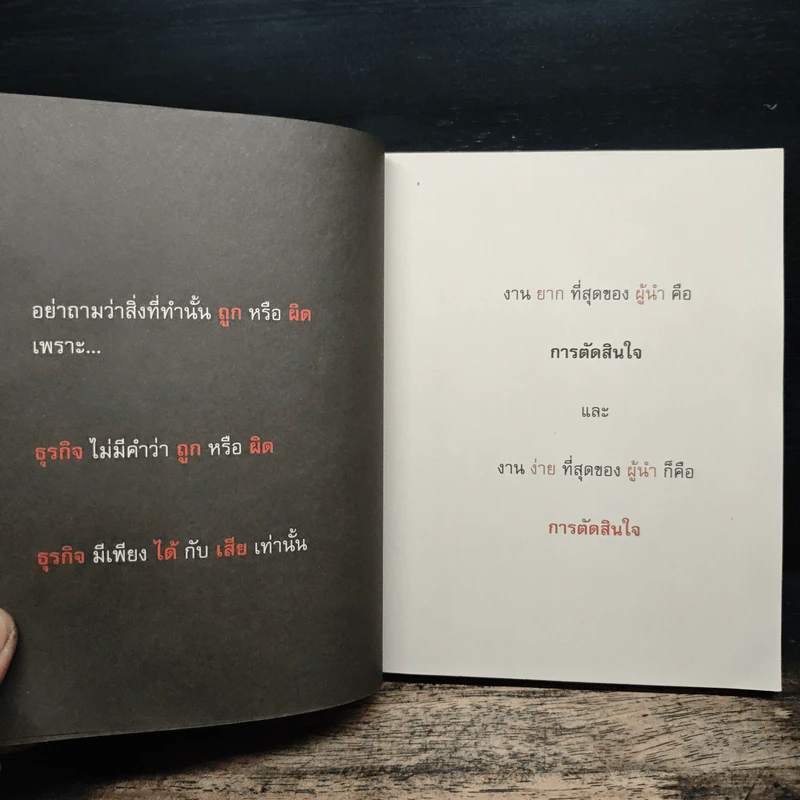 อย่าถามว่าสิ่งที่ทำนั้น ถูก หรือ ผิด
เพราะ...
ธุรกิจ ไม่มีคำว่า ถูก หรือ ผิด
ธุรกิจ มีเพียง ได้ กับ เสีย เท่านั้น
งาน ยาก ที่สุดของ ผู้นำ คือ
การตัดสินใจ
และ
งาน ง่าย ที่สุดของ ผู้นำ ก็คือ
การตัดสินใจ